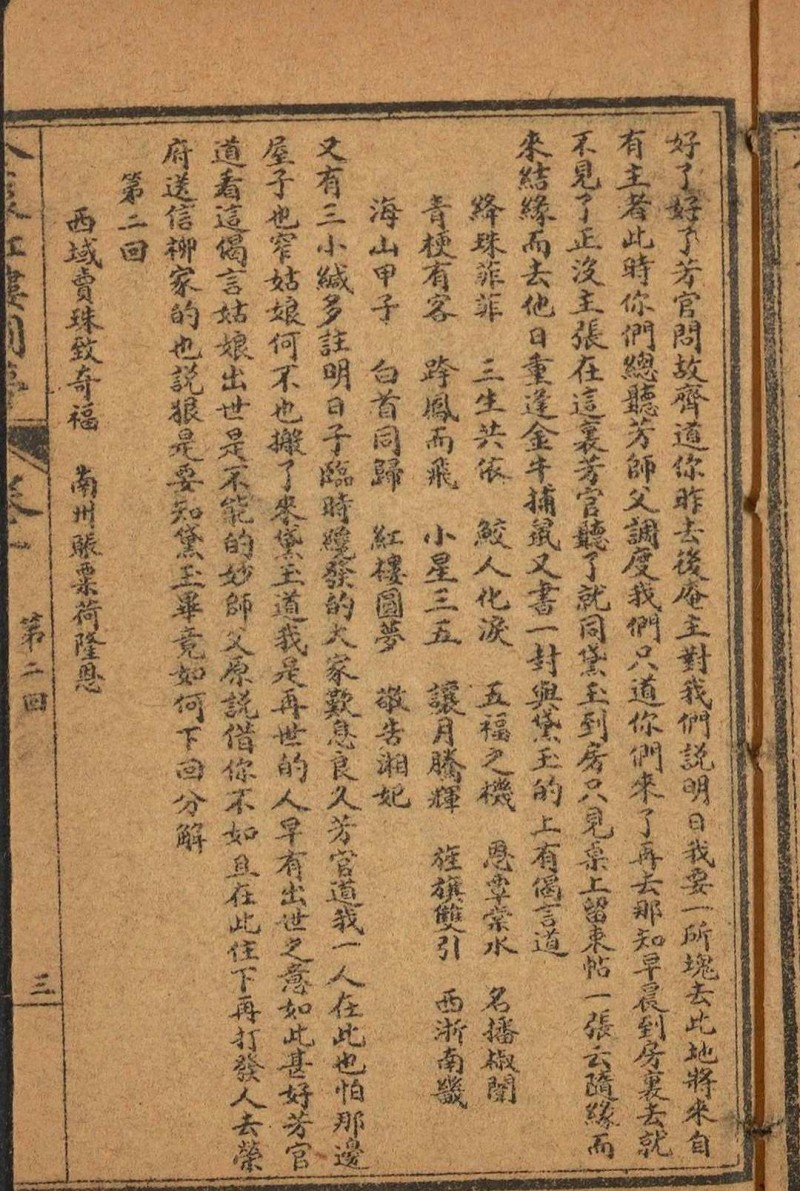 好了好了芳官問故齊道你昨去後庵主對我們説明日我要一所塊去此地將來自
有主者此時你們總聽芳師父調度我們只道你們來了再去那知早晨到房裏去就
不見了正沒主張在這裏芳官聽了就同黛玉到房只見桌上留柬帖一張云隨緣而
來結緣而去他日重逢金牛捕鼠又書一封與黛玉的上有偈言道
絳珠菲菲 三生共依 鮫人化淚 五福之機 恩覃棠水 名播椒闈
青梗有客 跨鳳而飛 小星三五 讓月騰輝 旌旗雙引 西浙南畿
海山甲子 白首同歸 紅樓圓夢 敬告湘妃
又有三小緘多註明日子臨時纔發的大家歎息良久芳官道我一人在此也怕那邊
屋子也窄姑娘何不也搬了來黛玉道我是再世的人早有出世之意如此甚好芳官
道看這偈言姑娘出世是不能的妙師父原説借你不如且在此住下再打發人去榮
府送信柳家的也説狠是要知黛玉畢竟如何下回分解
第二回
西域賣珠致奇福 南州賑粟荷隆恩
紅樓圓夢 卷一 第二回 三